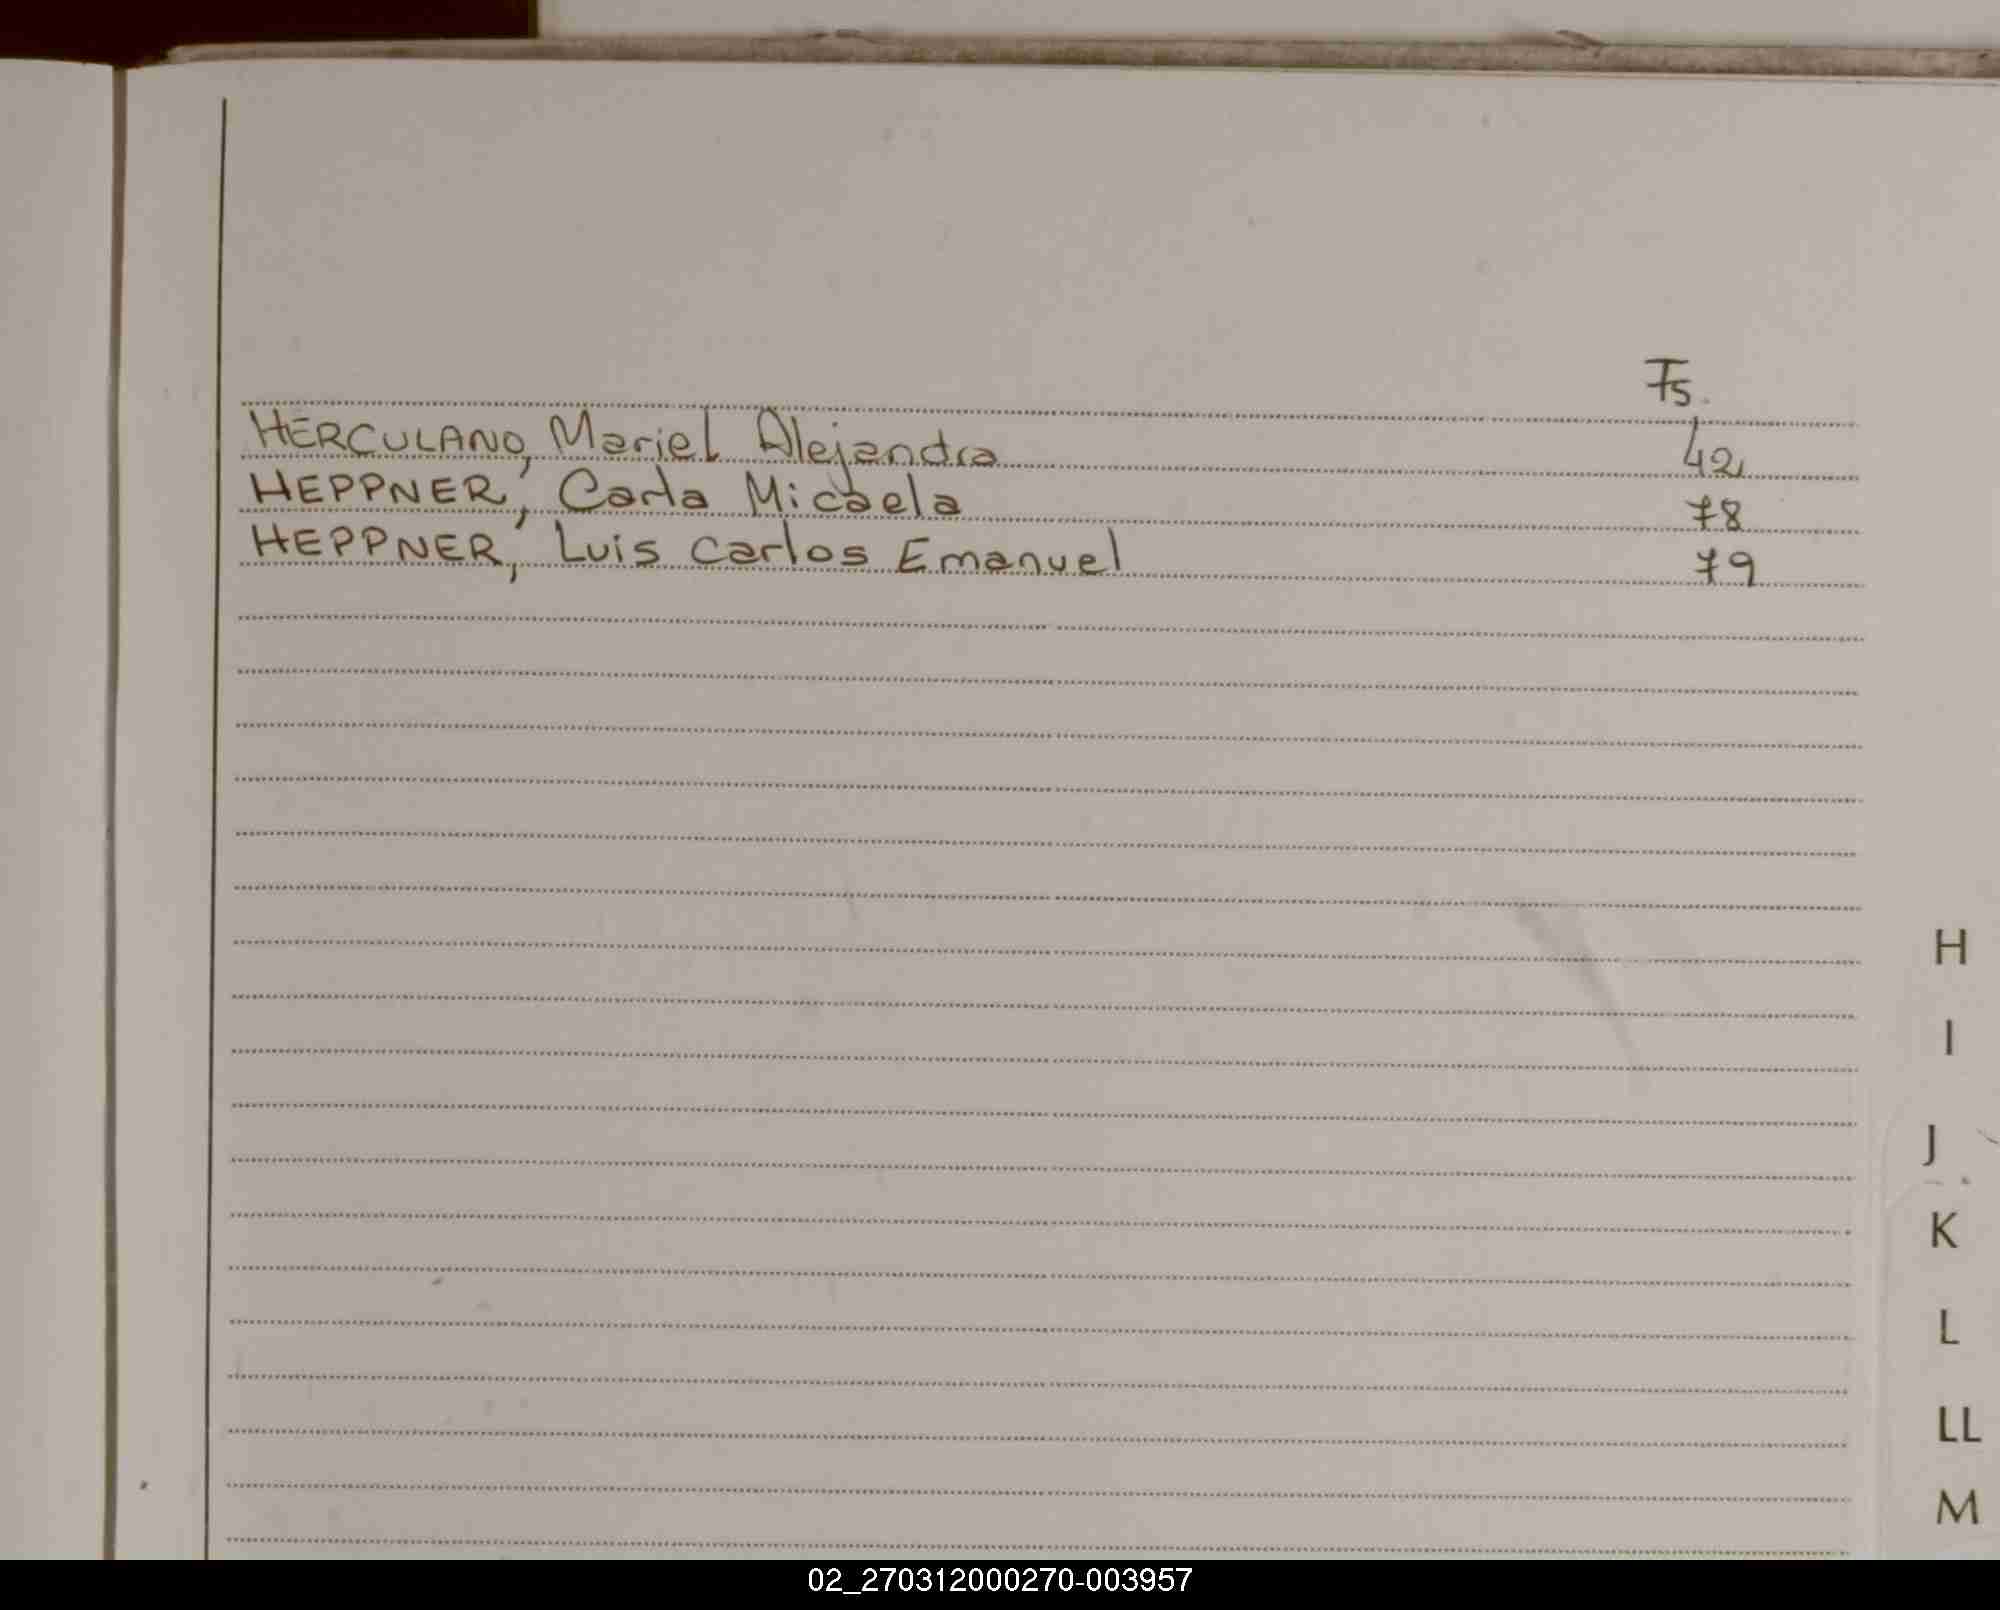 Fs.
HERCULANO, Mariel Alejandra 42
HEPPNER, Carla Micaela 78
HEPPNER, Luis Carlos Emanuel 79
H
I
J
K
L
LL
M
02_270312000270-003957